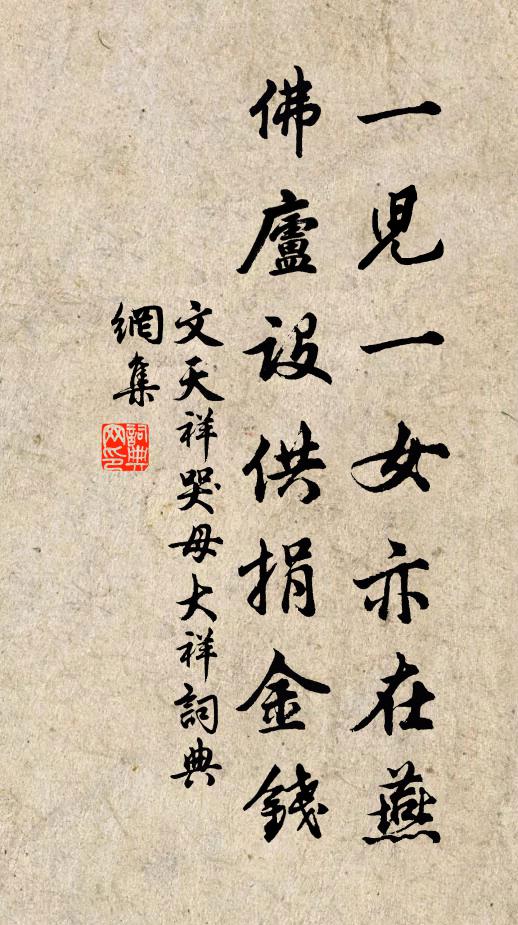 一兒一女亦在燕
佛廬設供捐金錢
文天祥哭母大祥詞典
網集
詞典网印